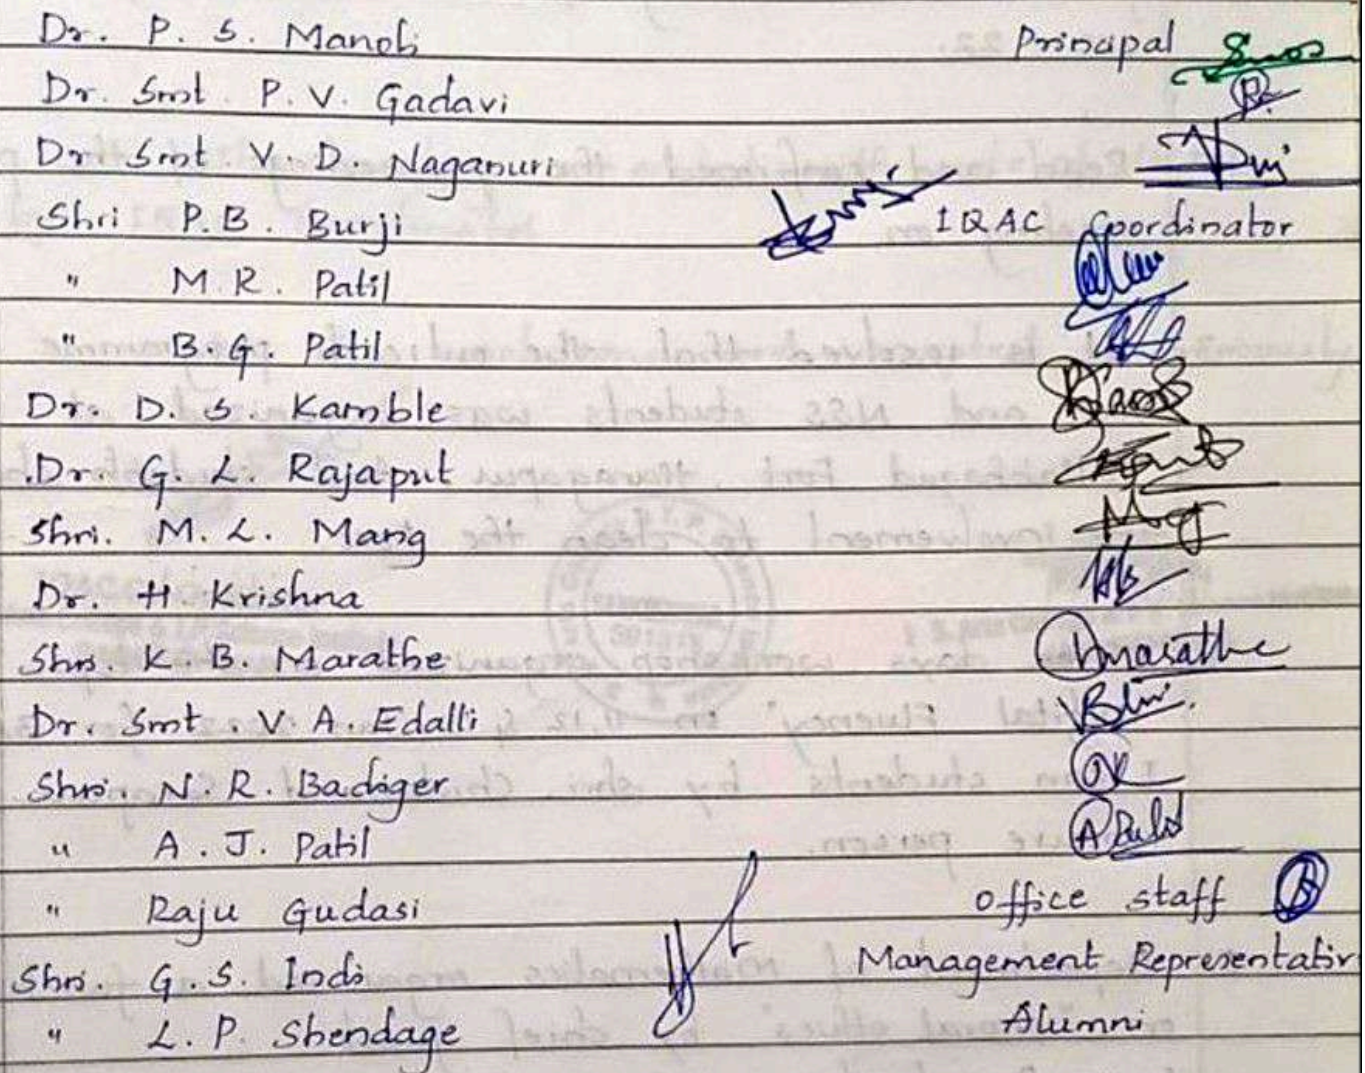 Dr. P. S. Manoli Principal
Dr. Smt. P. V. Gadavi
Dr Smt. V. D. Naganuri
Shri P.B. Burji IQAC Coordinator
" M.R. Patil
" B.G. Patil
Dr. D. S Kamble
Dr. G. L. Rajaput
Shri. M. L. Mang
Dr. H. Krishna
Shri. K. B. Marathe
Dr. Smt. V A. Edalli
Shri. N. R. Badiger
" A. J. Patil
" Raju Gudasi office staff
Shri. G. S. Indi Management Representativ
" L. P. Shendage Alumni